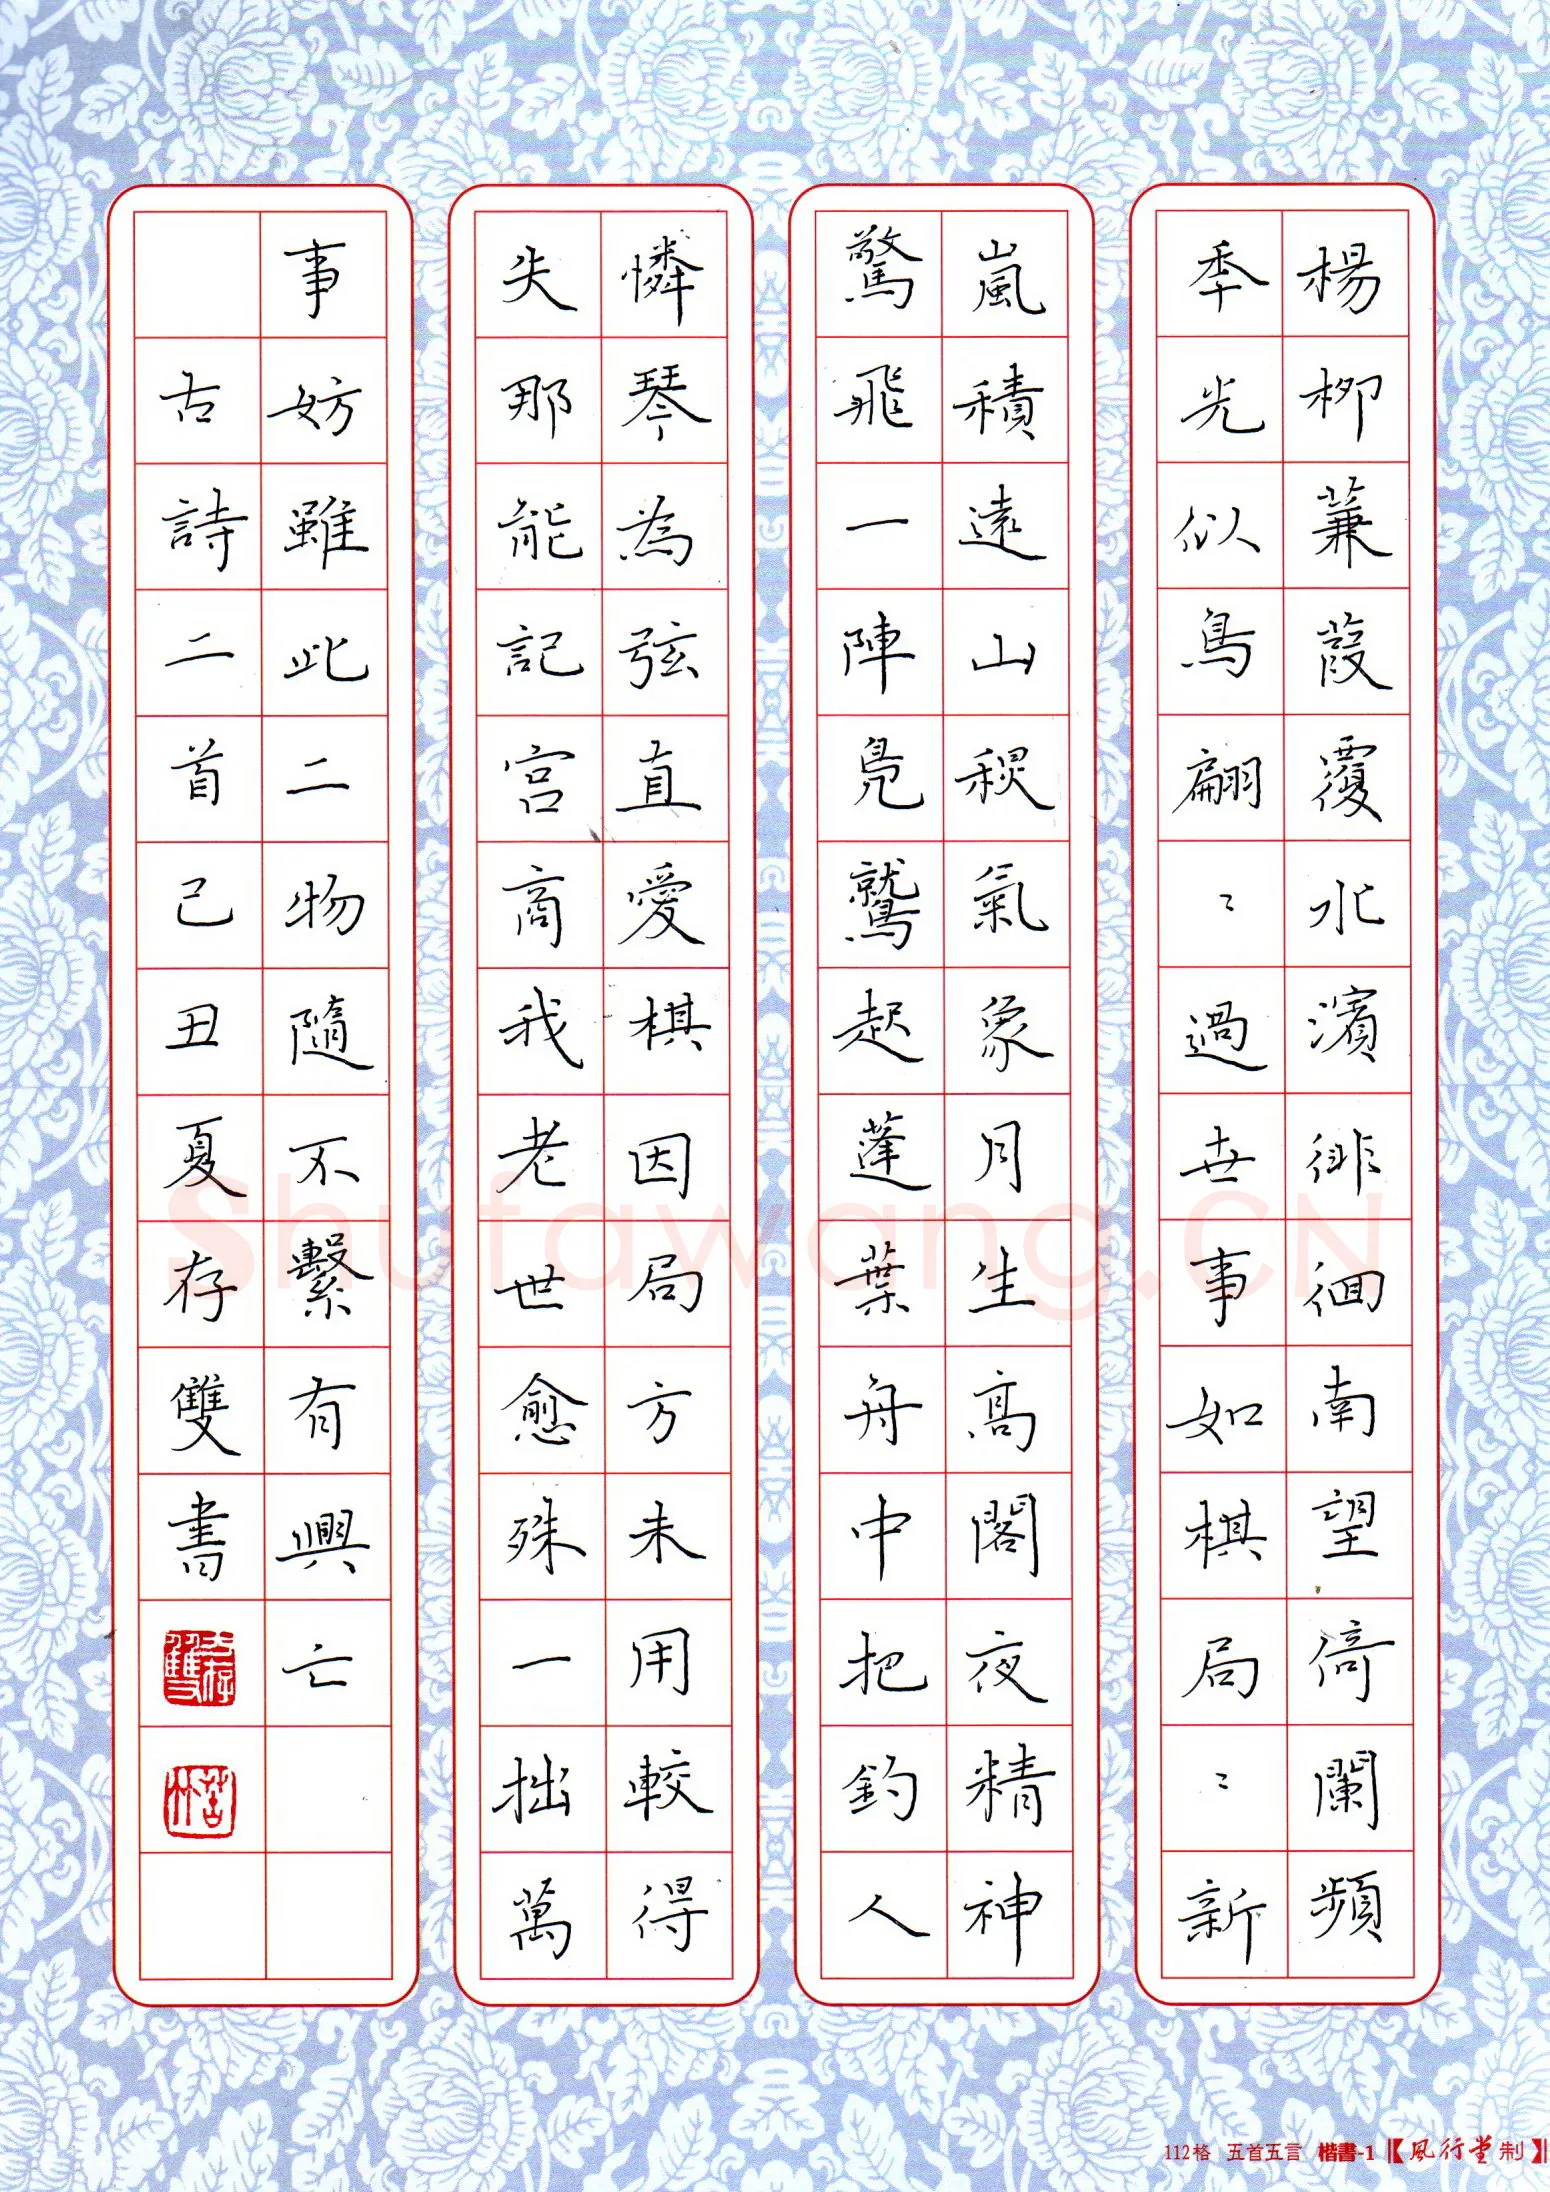 楊柳蒹葭覆水濱徘徊南望倚闌頻
秊光似鳥翩〻過世事如棋局〻新
嵐積遠山秋氣象月生高閣夜精神
驚飛一陣鳧鷲起蓬葉舟中把釣人
憐琴為弦直愛棋因局方未用較得
失那能記宮商我老世愈殊一拙萬
事妨雖此二物隨不繫有興亡
古詩二首己丑夏存雙書
Shufawang.CN
112格 五首五言 楷書-1【風行堂制】